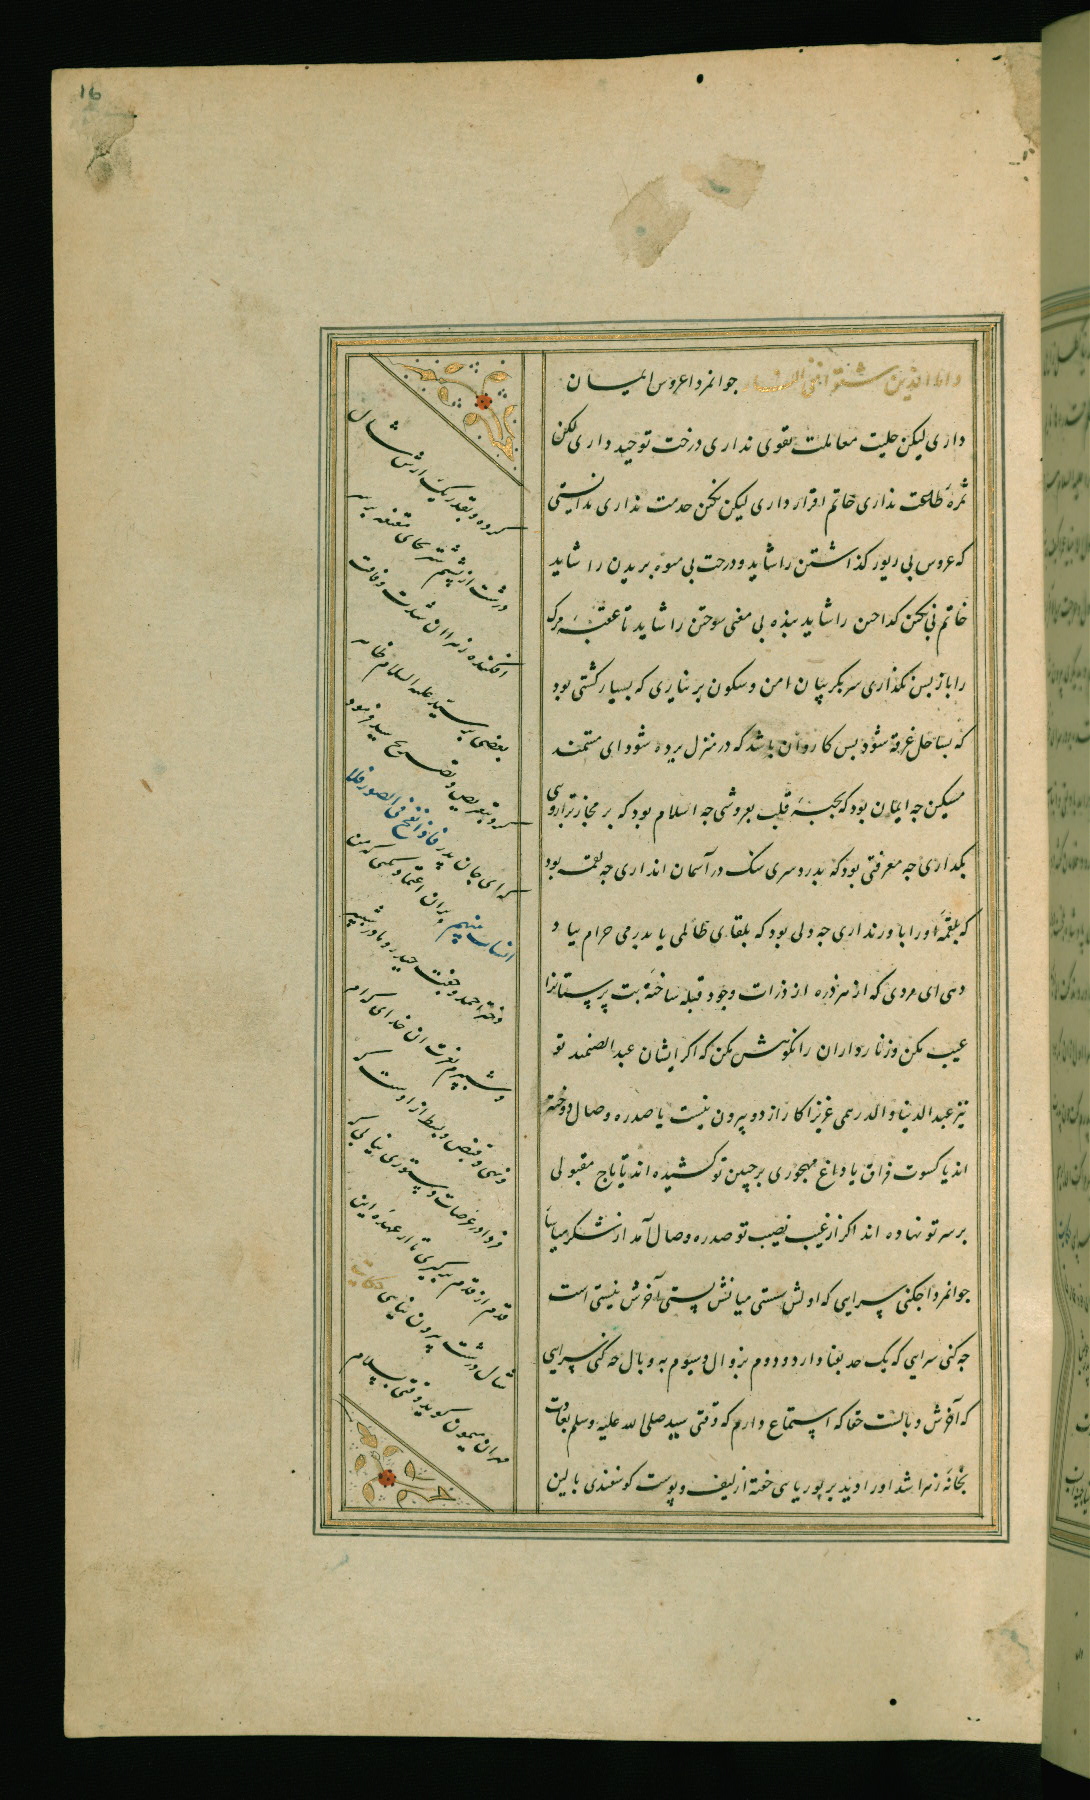 واما الذین شقوا ففی النار جوانمردا عروس ایمان
داری لیکن حلیت معاملت تقوی نداری درخت توحید داری لکن
ثمرهٔ طاعت نداری خاتم اقرار داری لیکن نکین خدمت نداری ندانستی
که عروس بی زیور کذاشتن را شاید و درخت بی میوه بریدن را شاید
خاتم بی نکین کداختن را شاید بنده بی معنی سوختن را شاید تا عقبهٔ مرک
را باز پس نکذاری سر بکریبان امن و سکون بر نیاری که بسیار کشتی بود
که بساحل غرقه شود بس کاروان باشد که در منزل برده شود ای مستمند
مسکین چه ایمان بود که بحبهٔ قلب بفروشی چه اسلام بود که بر مجاز ترازوی
بکداری چه معرفتی بود که بدرد سری سنک در آسمان اندازی چه لقمه بود
که بلقمهٔ او را باور نداری چه دلی بود که بلقای ظالمی یا بدرمی حرام بباد
دهی ای مردی که از هر ذره از ذرات وجود قبله ساختهٔ بت پرستانرا
عیب مکن و زنارداران را نکوهش مکن که اکر ایشان عبد الصنمند تو
نیز عبد الدنیا والدرهمی عزیزا کار از دو بیرون نیست یا صدره وصال دوخته
اند یا کسوت فراق یا داغ مهجوری بر جبین تو کشیده اند یا تاج مقبولی
بر سر تو نهاده اند اکر از غیب نصیب تو صدره وصال آمد از شکر میاسا
جوانمردا چکنی سرایی که اولش سستی میانش پستی آخرش نیستی است
چه کنی سرایی که یک حد بفنا دارد و دوم بزوال و سیوم به وبال چه کنی سرایی
که آخرش وبالست حقا که استماع دارم که وقتی سید صلی الله علیه وسلم بعادت
بخانهٔ زهرا شد او را دید بر بوریایی خفته از لیف و پوست کوسفندی بالین
کرده و بقدر یک ارش شال
درشت از پشم شتر بجای مقنعه بر سر
افکنده زهرا از آن شدت و فاقت
بعضی بر سید علیه السلام ظاهر
کرد بتعریض و تصریح سید فرمود
که ای جان پدر فاذا نفخ فی الصور فلا
انساب بینهم بر آن اعتماد مکن که من
دختر احمد و جفت حیدر و مادر شبیر
و شبرم بعزت آن خدای که رام
وسی و قبض و بسط از اوست که
فردا در عرصات دستوری نیابی که
قدم از قدم برکیری تا از عهدهٔ این
شال درشت بیرون نیایی حکایت
مهران میمون کوید وقتی بسلام